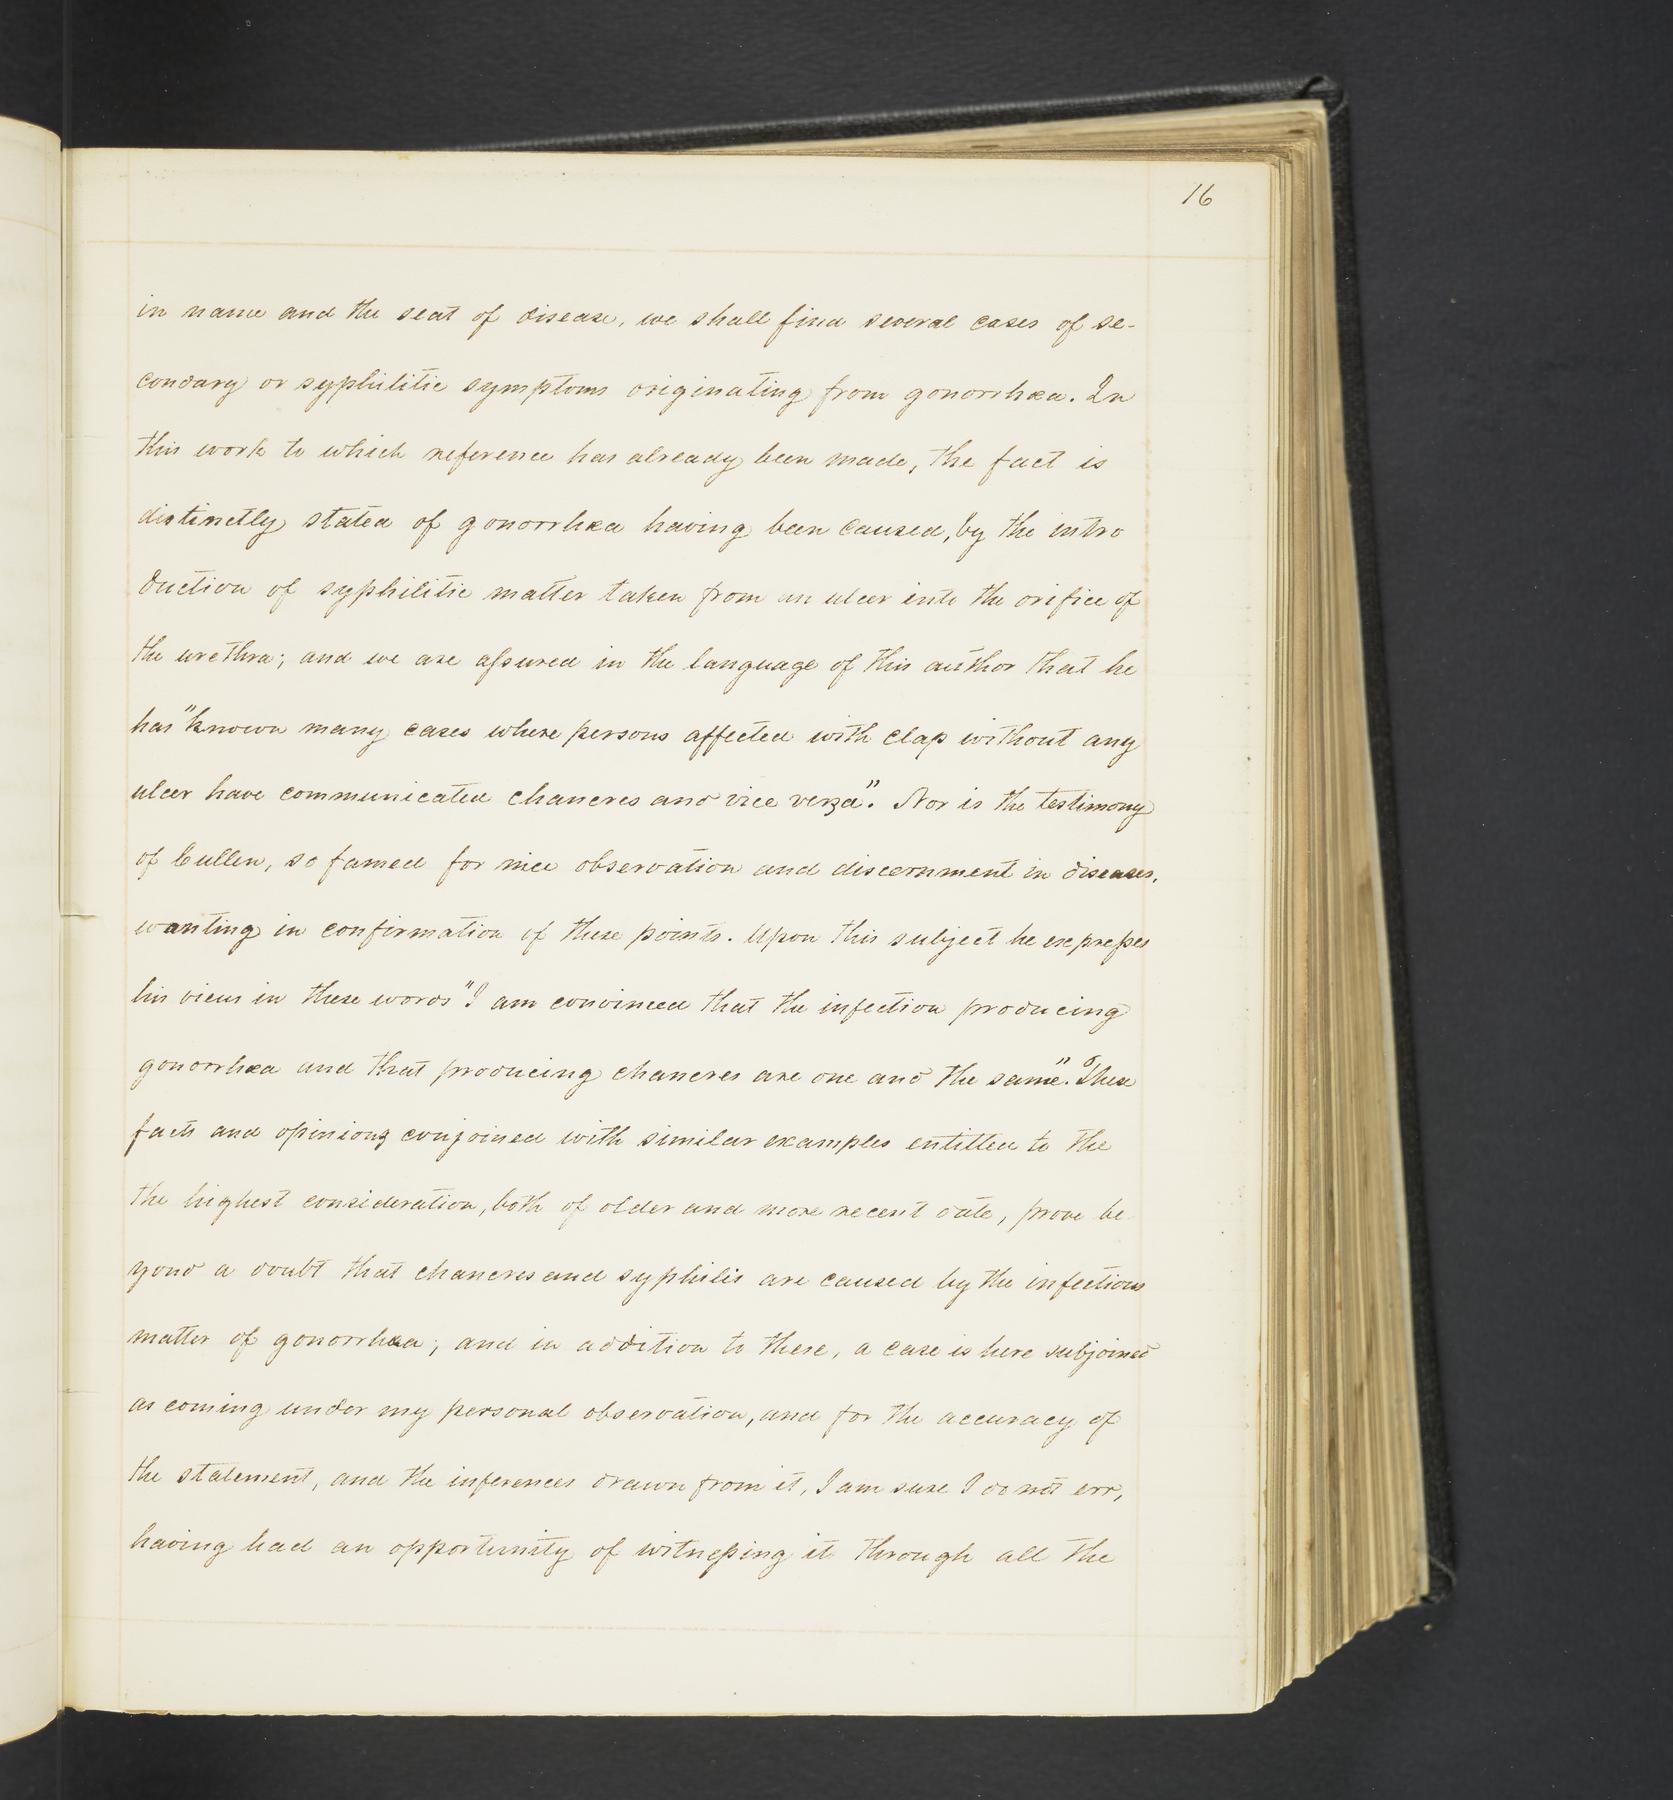 16
in name and the seat of disease, we shall find several cases of se-
condary or syphilitic symptoms originating from gonorrhœa. In
this work to which reference has already been made, the fact is
distinctly stated of gonorrhœa having been caused, by the intro
duction of syphilitic matter taken from an ulcer into the orifice of
the urethra; and we are assured in the language of this author that he
has "known many cases where persons affected with clap without any
ulcer have communicated chancres and vice versa". Nor is the testimony
of Cullen, so famed for nice observation and discernment in diseases,
wanting in confirmation of these points. Upon this subject he expresses
his views in these words "I am convinced that the infection producing
gonorrhœa and that producing chancres are one and the same". These
facts and opinions conjoined with similar examples entitled to the
the highest consideration, both of older and more recent date, prove be
yond a doubt that chancres and syphilis are caused by the infectious
matter of gonorrhœa; and in addition to these, a case is here subjoined
as coming under my personal observation, and for the accuracy of
the statement, and the inferences drawn from it, I am sure I do not err,
having had an opportunity of witnessing it through all the